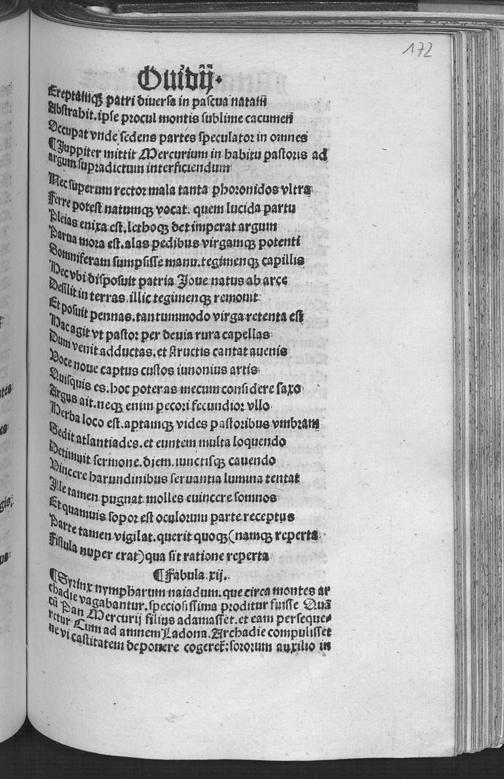 172
Ouidij.
Ereptamqꝫ patri diuersa in pascua natam
Abstrahit. ipse procul montis sublime cacumen
Occupat vnde sedens partes speculator in omnes
¶Juppiter mittit Mercurium in habitu pastoris ad
argum supradictum interficiendum
Nec superum rector mala tanta phoronidos vltra
Ferre potest natumqꝫ vocat. quem lucida partu
Pleias enixa est. lethoqꝫ det imperat argum
Parua mora est. alas pedibus virgamqꝫ potenti
Somniferam sumpsisse manu. tegimenqꝫ capillis
Nec vbi disposuit patria Joue natus ab arce
Desilit in terras. illic tegimenqꝫ remouit
Et posuit pennas. tantummodo virga retenta est
Hac agit vt pastor per deuia rura capellas
Dum venit adductas. et structis cantat auenis
Voce noue captus custos iunonius artis
Quisquis es. hoc poteras mecum considere saxo
Argus ait. neqꝫ enim pecori fecundior vllo
Herba loco est. aptamqꝫ vides pastoribus vmbram
Sedit atlantiades. et euntem multa loquendo
Detinuit sermone. diem. iunctisqꝫ cauendo
Vincere harundinibus seruantia lumina tentat
Ille tamen pugnat molles euincere somnos
Et quamuis sopor est oculorum parte receptus
Parte tamen vigilat. querit quoqꝫ (namqꝫ reperta
Fistula nuper erat) qua sit ratione reperta
¶Fabula .xij.
¶Syrinx nympharum naiadum. que circa montes ar
chadie vagabantur. speciosissima proditur fuisse Quã
cũ Pan Mercurij filius adamasset. et eam perseque-
retur Cum ad amnem Ladona. Archadie compulisset
ne vi castitatem deponere cogeret̃: sororum auxilio in